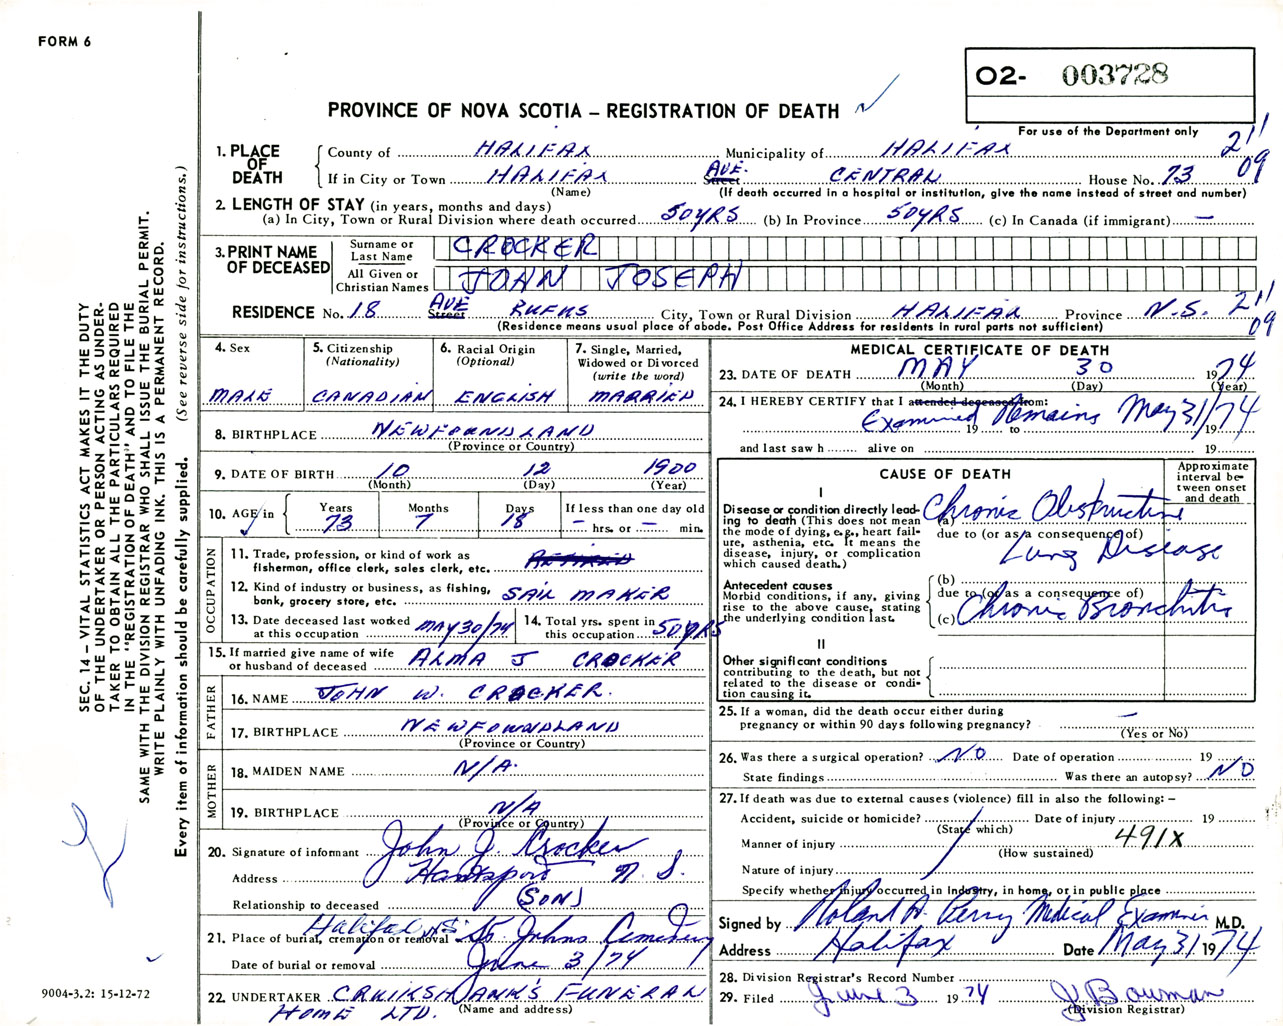 FORM 6
O2- 003728
PROVINCE OF NOVA SCOTIA – REGISTRATION OF DEATH
For use of the Department only
1. PLACE OF DEATH
County of HALIFAX Municipality of HALIFAX 211
If in City or Town HALIFAX AVE. Street CENTRAL House No. 73 09
(Name) (If death occurred in a hospital or institution, give the name instead of street and number)
2. LENGTH OF STAY (in years, months and days)
(a) In City, Town or Rural Division where death occurred 50YRS (b) In Province 50YRS (c) In Canada (if immigrant) —
3. PRINT NAME OF DECEASED
Surname or Last Name CROCKER
All Given or Christian Names JOHN JOSEPH
RESIDENCE No. 18 AVE Street RUFUS City, Town or Rural Division HALIFAX Province N.S. 211
(Residence means usual place of abode. Post Office Address for residents in rural parts not sufficient) 09
4. Sex
MALE
5. Citizenship
(Nationality)
CANADIAN
6. Racial Origin
(Optional)
ENGLISH
7. Single, Married,
Widowed or Divorced
(write the word)
MARRIED
8. BIRTHPLACE NEWFOUNDLAND
(Province or Country)
9. DATE OF BIRTH 10 12 1900
(Month) (Day) (Year)
10. AGE in
Years Months Days If less than one day old
73 7 18 – hrs. or – min.
OCCUPATION
11. Trade, profession, or kind of work as
fisherman, office clerk, sales clerk, etc. RETIRED
12. Kind of industry or business, as fishing,
bank, grocery store, etc. SAIL MAKER
13. Date deceased last worked
at this occupation MAY 30/74
14. Total yrs. spent in
this occupation 50YRS
15. If married give name of wife
or husband of deceased ALMA J CROCKER
FATHER
16. NAME JOHN W. CROCKER.
17. BIRTHPLACE NEWFOUNDLAND
(Province or Country)
MOTHER
18. MAIDEN NAME N/A.
19. BIRTHPLACE N/A
(Province or Country)
20. Signature of informant John J. Crocker
Address Hantsport N.S.
Relationship to deceased (SON)
Halifax N.S.
21. Place of burial, cremation or removal St. Johns Cemetery
Date of burial or removal June 3/74
22. UNDERTAKER CRUIKSHANK'S FUNERAL
HOME LTD. (Name and address)
MEDICAL CERTIFICATE OF DEATH
23. DATE OF DEATH MAY 30 1974
(Month) (Day) (Year)
24. I HEREBY CERTIFY that I attended deceased from:
Examined 19 to Remains May 31/ 19 74
and last saw h alive on 19
CAUSE OF DEATH
Approximate
interval be-
tween onset
and death
I
Disease or condition directly lead-
ing to death (This does not mean
the mode of dying, e.g., heart fail-
ure, asthenia, etc. It means the
disease, injury, or complication
which caused death.)
(a) Chronic Obstructive
due to (or as a consequence of)
Lung Disease
Antecedent causes
Morbid conditions, if any, giving
rise to the above cause, stating
the underlying condition last.
(b)
due to (or as a consequence of)
(c) Chronic Bronchitis
II
Other significant conditions
contributing to the death, but not
related to the disease or condi-
tion causing it.
25. If a woman, did the death occur either during
pregnancy or within 90 days following pregnancy? —
(Yes or No)
26. Was there a surgical operation? NO Date of operation 19
State findings Was there an autopsy? NO
27. If death was due to external causes (violence) fill in also the following: –
Accident, suicide or homicide? Date of injury 19
(State which)
Manner of injury 491X
(How sustained)
Nature of injury
Specify whether injury occurred in Industry, in home, or in public place
Signed by Roland A. Perry Medical Examiner M.D.
Address Halifax Date May 31 1974
28. Division Registrar's Record Number
29. Filed June 3 1974 J Bouman
(Division Registrar)
SEC. 14 – VITAL STATISTICS ACT MAKES IT THE DUTY
OF THE UNDERTAKER OR PERSON ACTING AS UNDER-
TAKER TO OBTAIN ALL THE PARTICULARS REQUIRED
IN THE "REGISTRATION OF DEATH" AND TO FILE THE
SAME WITH THE DIVISION REGISTRAR WHO SHALL ISSUE THE BURIAL PERMIT.
WRITE PLAINLY WITH UNFADING INK. THIS IS A PERMANENT RECORD.
Every item of information should be carefully supplied. (See reverse side for instructions.)
9004-3.2: 15-12-72